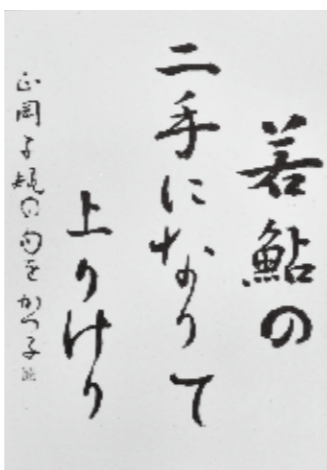 若鮎の
二手になりて
上りけり
正岡子規の句をかつ子